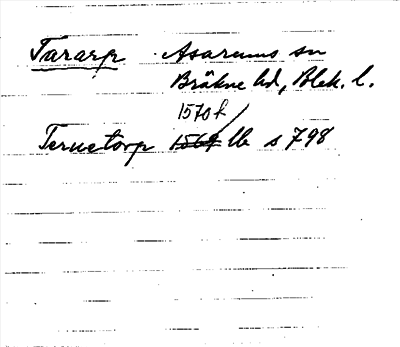 Tararp Asarums sn
Bräkne hd, Blek. l.
1570 f/
Ternetorp 1569 lb s 798